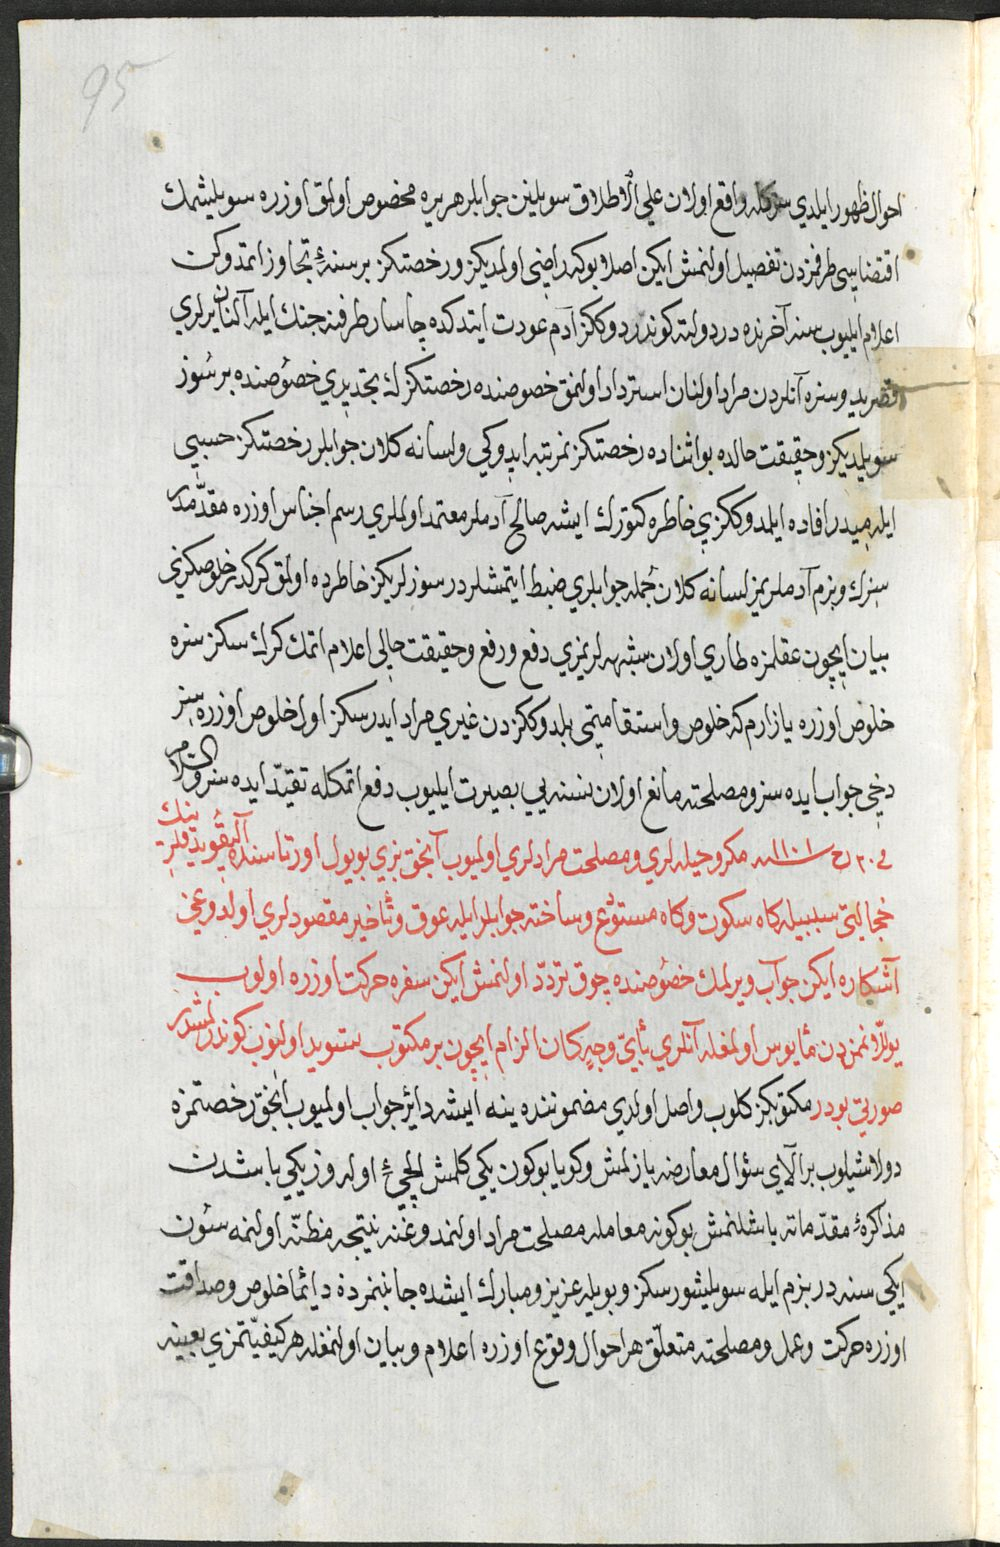 95
احوال ظهور ايلدي سزكله واقع اولان علي الاطلاق سويلنن جوابلر هر يره مخصوص اولمق اوزره سويلشمك
اقتضا طرفمزدن تفصيل اولنمش ايكن اصلا بوكه راضي اولمديكز ورخصتكز بر سنه تجاوز اتمدوكن
اعلام ايليوب سنه آخرنده در دولته كوندردوككز آدم عودت ايتدكده چاسار طرفنه جنك ايله آلنان يرلري
وسزه آنلردن مراد اولنان استرداد اولنمق خصوصنده رخصتكزك تجديدي خصوصنده بر سوز
سويلمديكز وحقيقت حالده بو اثناده رخصتكز نمرتبه ايدوكي ولسانه كلان جوابلر رخصتكز حسبي
ايله ميدر افاده ايلدوككزي خاطره كتورك ايشه صالح آدملر معتمد اولملري رسم اجناس اوزره مقدمدر
سزك وبزم آدملريمز لسانه كلان جمله جوابلري ضبط ايتمشلردر سوزلريكز خاطرده اولمق كركدر خلوصكزى
بيان ايچون عقلمزه طاري اولان شبهه لريمزي دفع ورفع وحقيقت حالى اعلام اتمك كرك سكز سزه
خلوص اوزره يازارم كه خلوص واستقامتمى بلدوككزدن غيري مراد ايدرسكز اول خلوص اوزره سز
دخي جواب ايده سز ومصلحته مانع اولان سنه يي بصيرت ايليوب دفع اتمكله تقيد ايده سز والسلام
في ٢٠ رح سنه ١١٠١ مكر وحيله لري ومصلحت مرادلري اولميوب آنجق بزي بو يول اورتاسنده
خجالتى سببيله كاه سكوت وكاه مستوع وساخته جوابلر ايله عوق وتأخير مقصودلري اولدوغي
آشكاره ايكن جواب ويرلمك خصوصنده چوق تردد اولنمش ايكن سفره حركت اوزره اولوب
يوللاونمزدن مأيوس اولمغله آنلري بأي وجه كان الزام ايچون بر مكتوب تسويد اولنوب كوندرلمشدر
صورتي بودر مكتوبكز كلوب واصل اولدي مضموننده ينه ايشه دائر جواب اولميوب آنجق رخصتمزه
دولاشيلوب بر آلاي سئوال معارضه يازلمش وكويا بوكون يكي كلمش ايلچي اوله وز يكي باشدن
مذاكره مقدماته باشلنمش بوكونه معامله مصلحت مراد اولنمدوغنه نتيجه مظنه اولنمه سون
ايكي سنه در بزم ايله سويليشورسكز وبويله عزيز ومبارك ايشده جانبمزده دائما خلوص وصداقت
اوزره حركت وعمل ومصلحته متعلق هر احوال وقوع اوزره اعلام وبيان اولنمغله هر كيفيتمزي بعينه